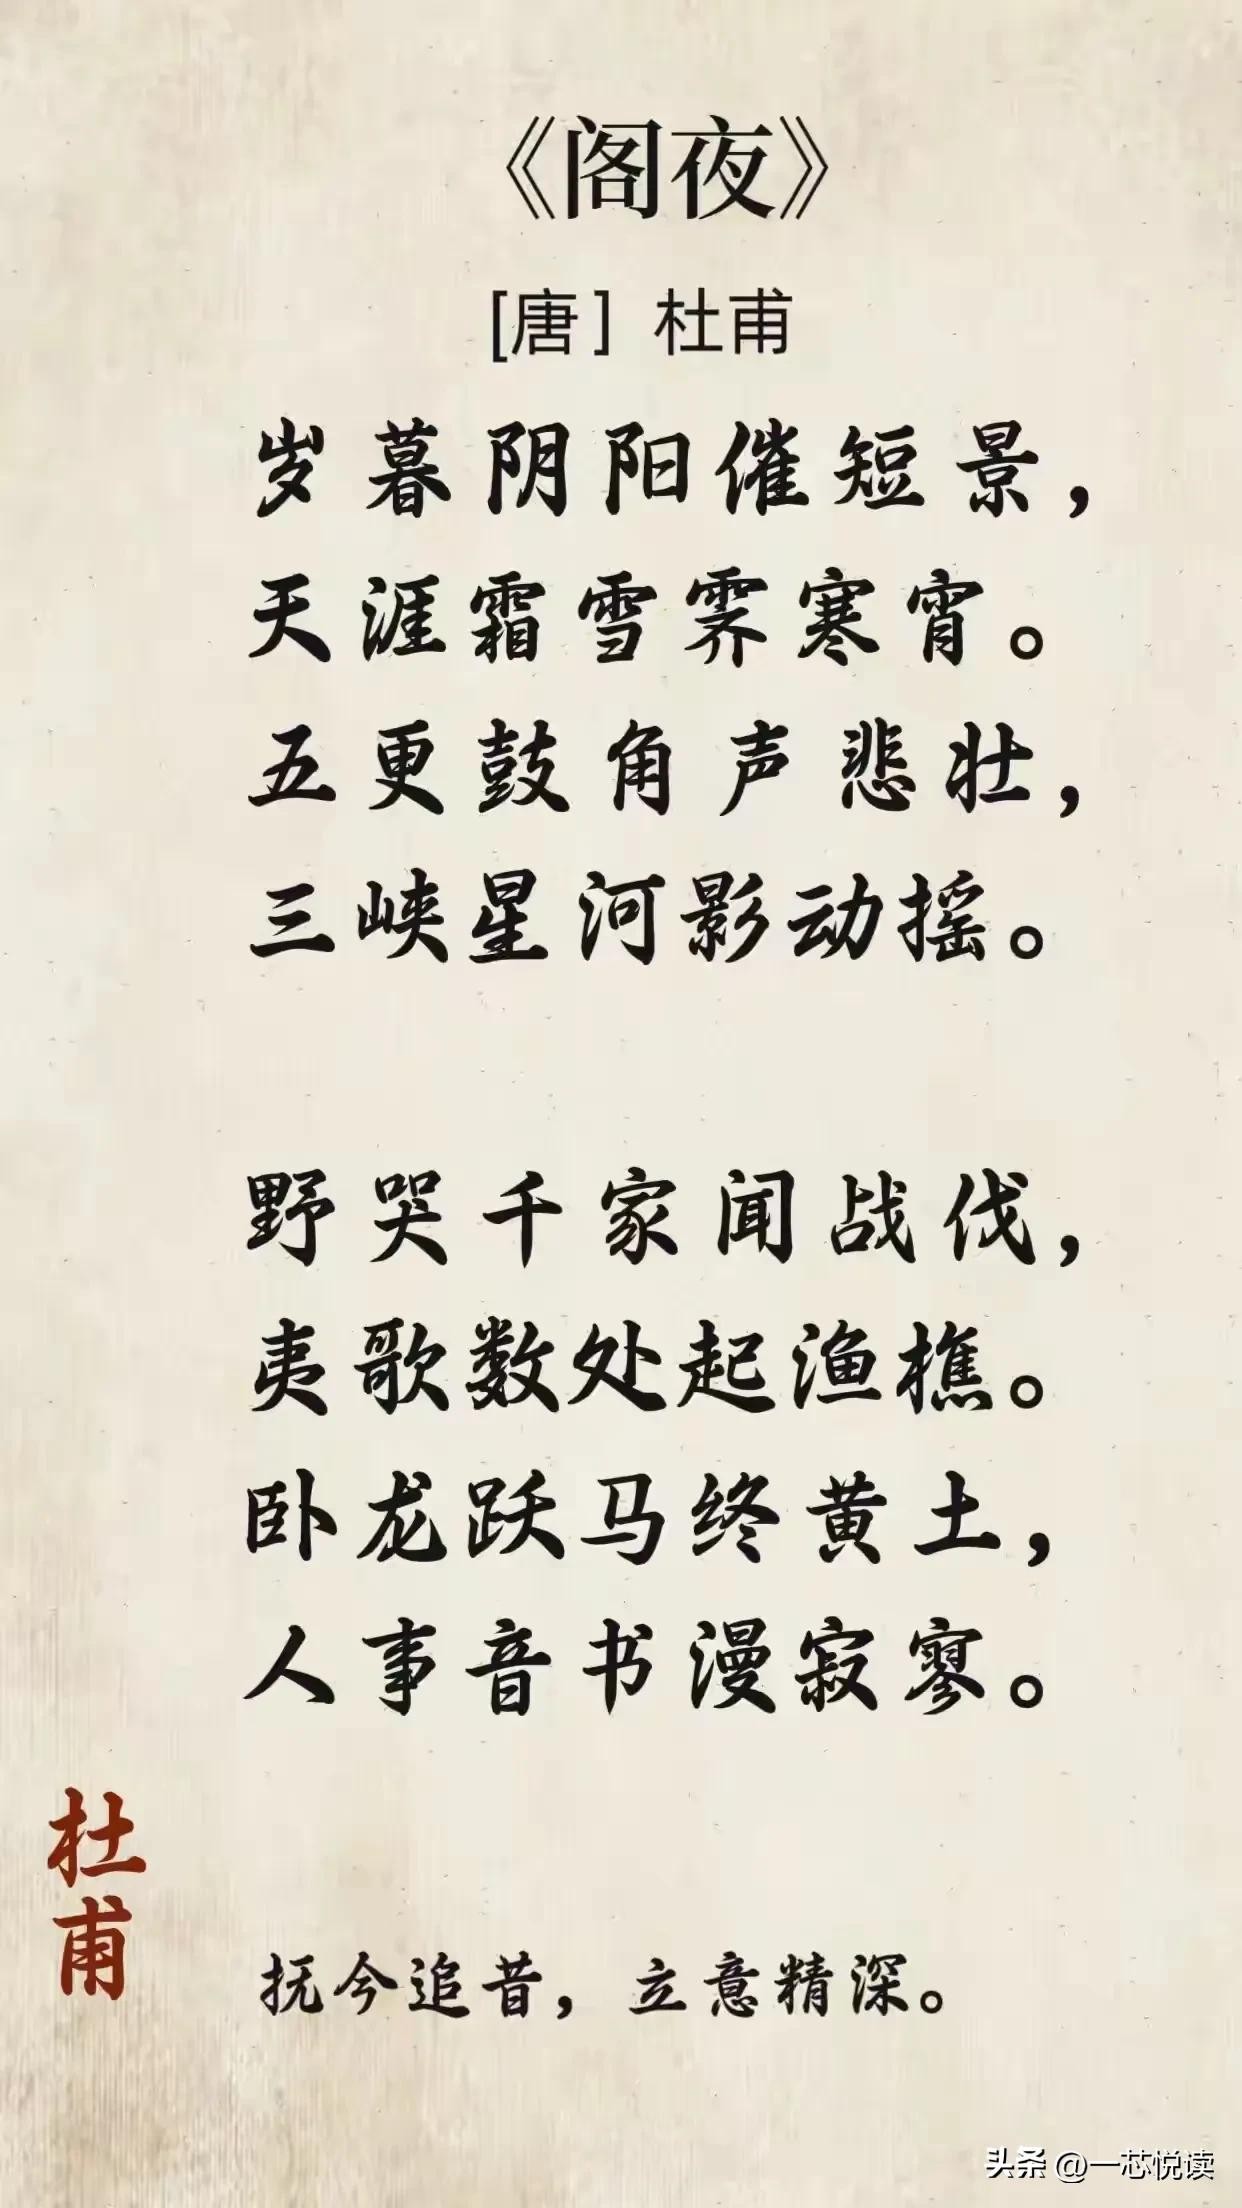 《阁夜》
[唐] 杜甫
岁暮阴阳催短景，
天涯霜雪霁寒宵。
五更鼓角声悲壮，
三峡星河影动摇。
野哭千家闻战伐，
夷歌数处起渔樵。
卧龙跃马终黄土，
人事音书漫寂寥。
杜甫
抚今追昔，立意精深。
头条 @一芯悦读